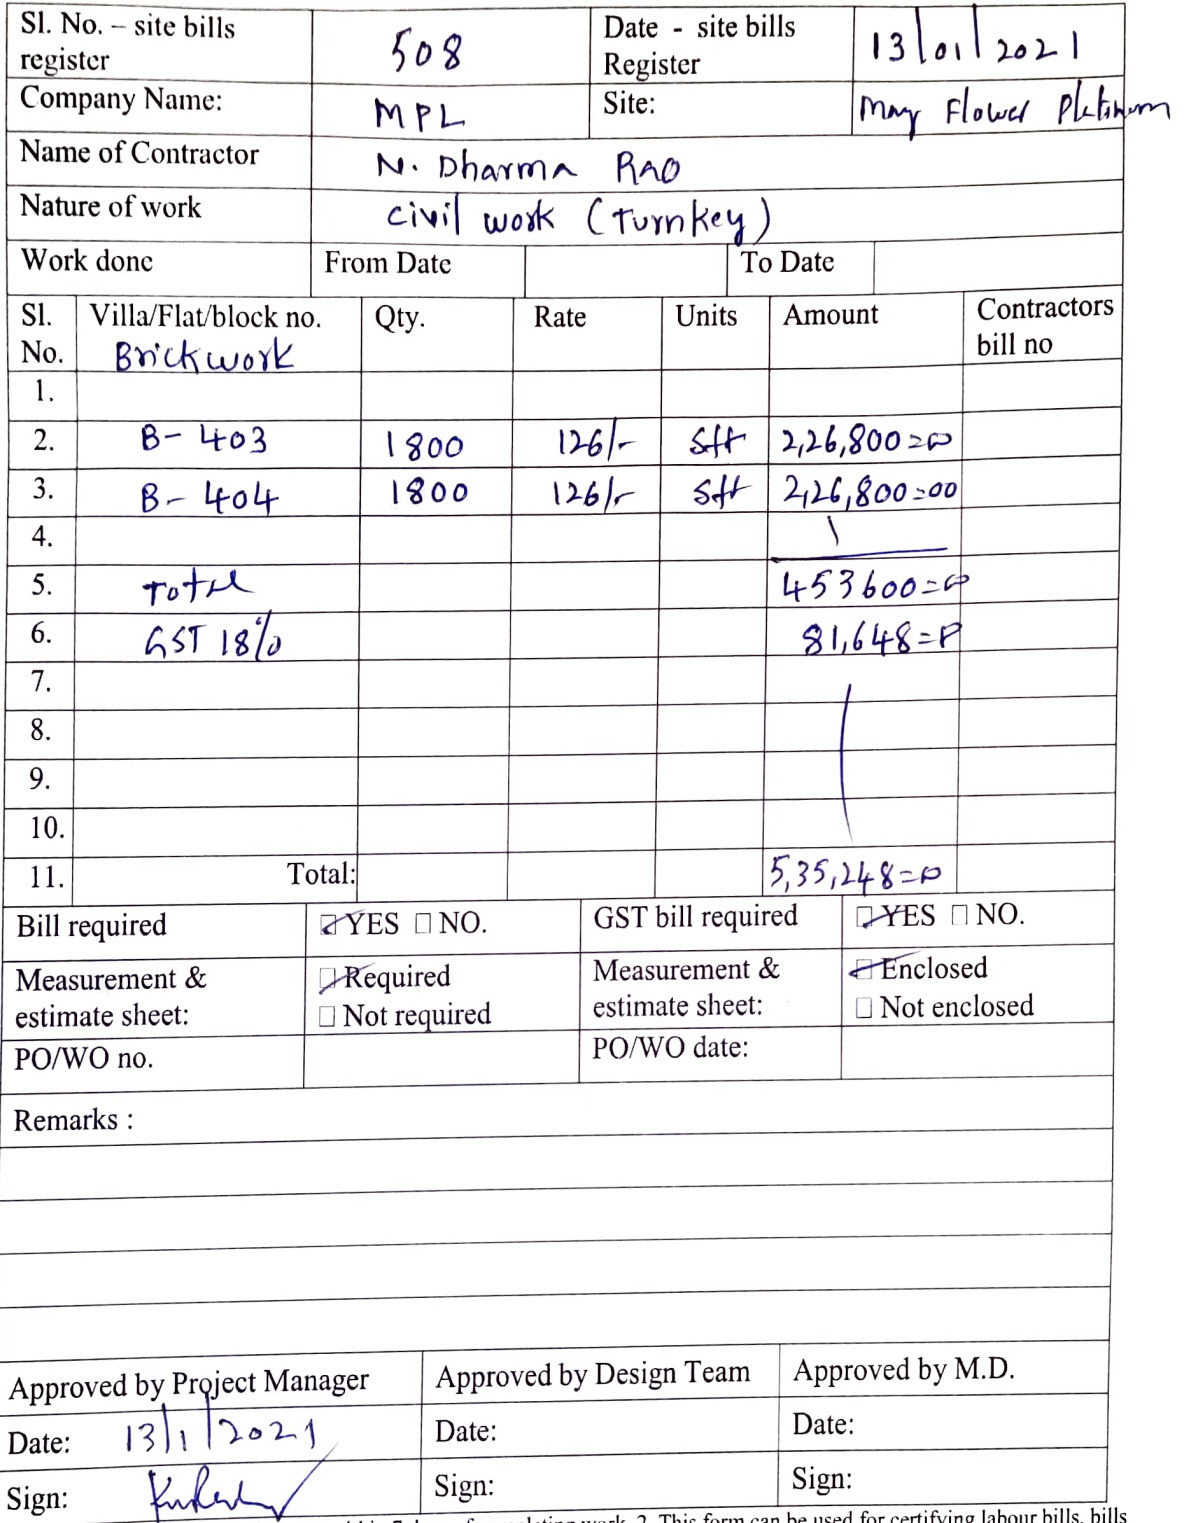 Sl. No. – site bills register 508 Date - site bills Register 13/01/2021
Company Name: MPL Site: May Flower Platinum
Name of Contractor N. Dharma Rao
Nature of work civil work (Turnkey)
Work done From Date To Date
Sl. No. Villa/Flat/block no. Brickwork Qty. Rate Units Amount Contractors bill no
1.
2. B- 403 1800 126/- sft 2,26,800=00
3. B- 404 1800 126/- sft 2,26,800=00
4.
5. Total 453600=00
6. GST 18% 81,648=00
7.
8.
9.
10.
11. Total: 5,35,248=00
Bill required YES NO. GST bill required YES NO.
Measurement & estimate sheet: Required Not required Measurement & estimate sheet: Enclosed Not enclosed
PO/WO no. PO/WO date:
Remarks :
Approved by Project Manager Approved by Design Team Approved by M.D.
Date: 13/1/2021 Date: Date:
Sign: Sign: Sign:
work. 2. This form can be used for certifying labour bills, bills